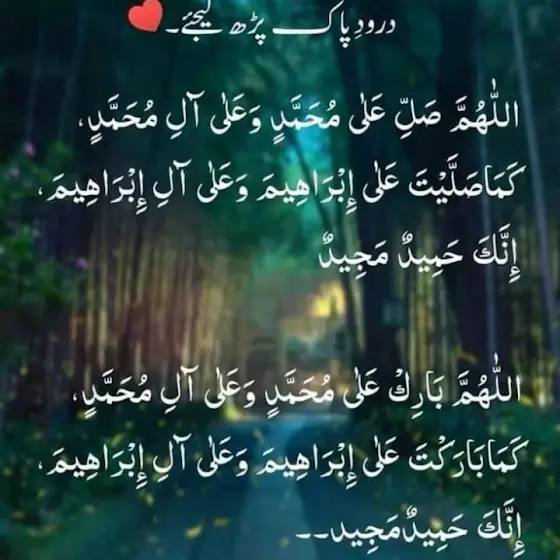 درودِ پاک پڑھ لیجئے۔❤️
اللّٰهُمَّ صَلِّ عَلٰى مُحَمَّدٍ وَعَلٰى آلِ مُحَمَّدٍ،
كَمَا صَلَّيْتَ عَلٰى إِبْرَاهِيمَ وَعَلٰى آلِ إِبْرَاهِيمَ،
إِنَّكَ حَمِيدٌ مَجِيدٌ
اللّٰهُمَّ بَارِكْ عَلٰى مُحَمَّدٍ وَعَلٰى آلِ مُحَمَّدٍ،
كَمَا بَارَكْتَ عَلٰى إِبْرَاهِيمَ وَعَلٰى آلِ إِبْرَاهِيمَ،
إِنَّكَ حَمِيدٌ مَجِيد۔۔